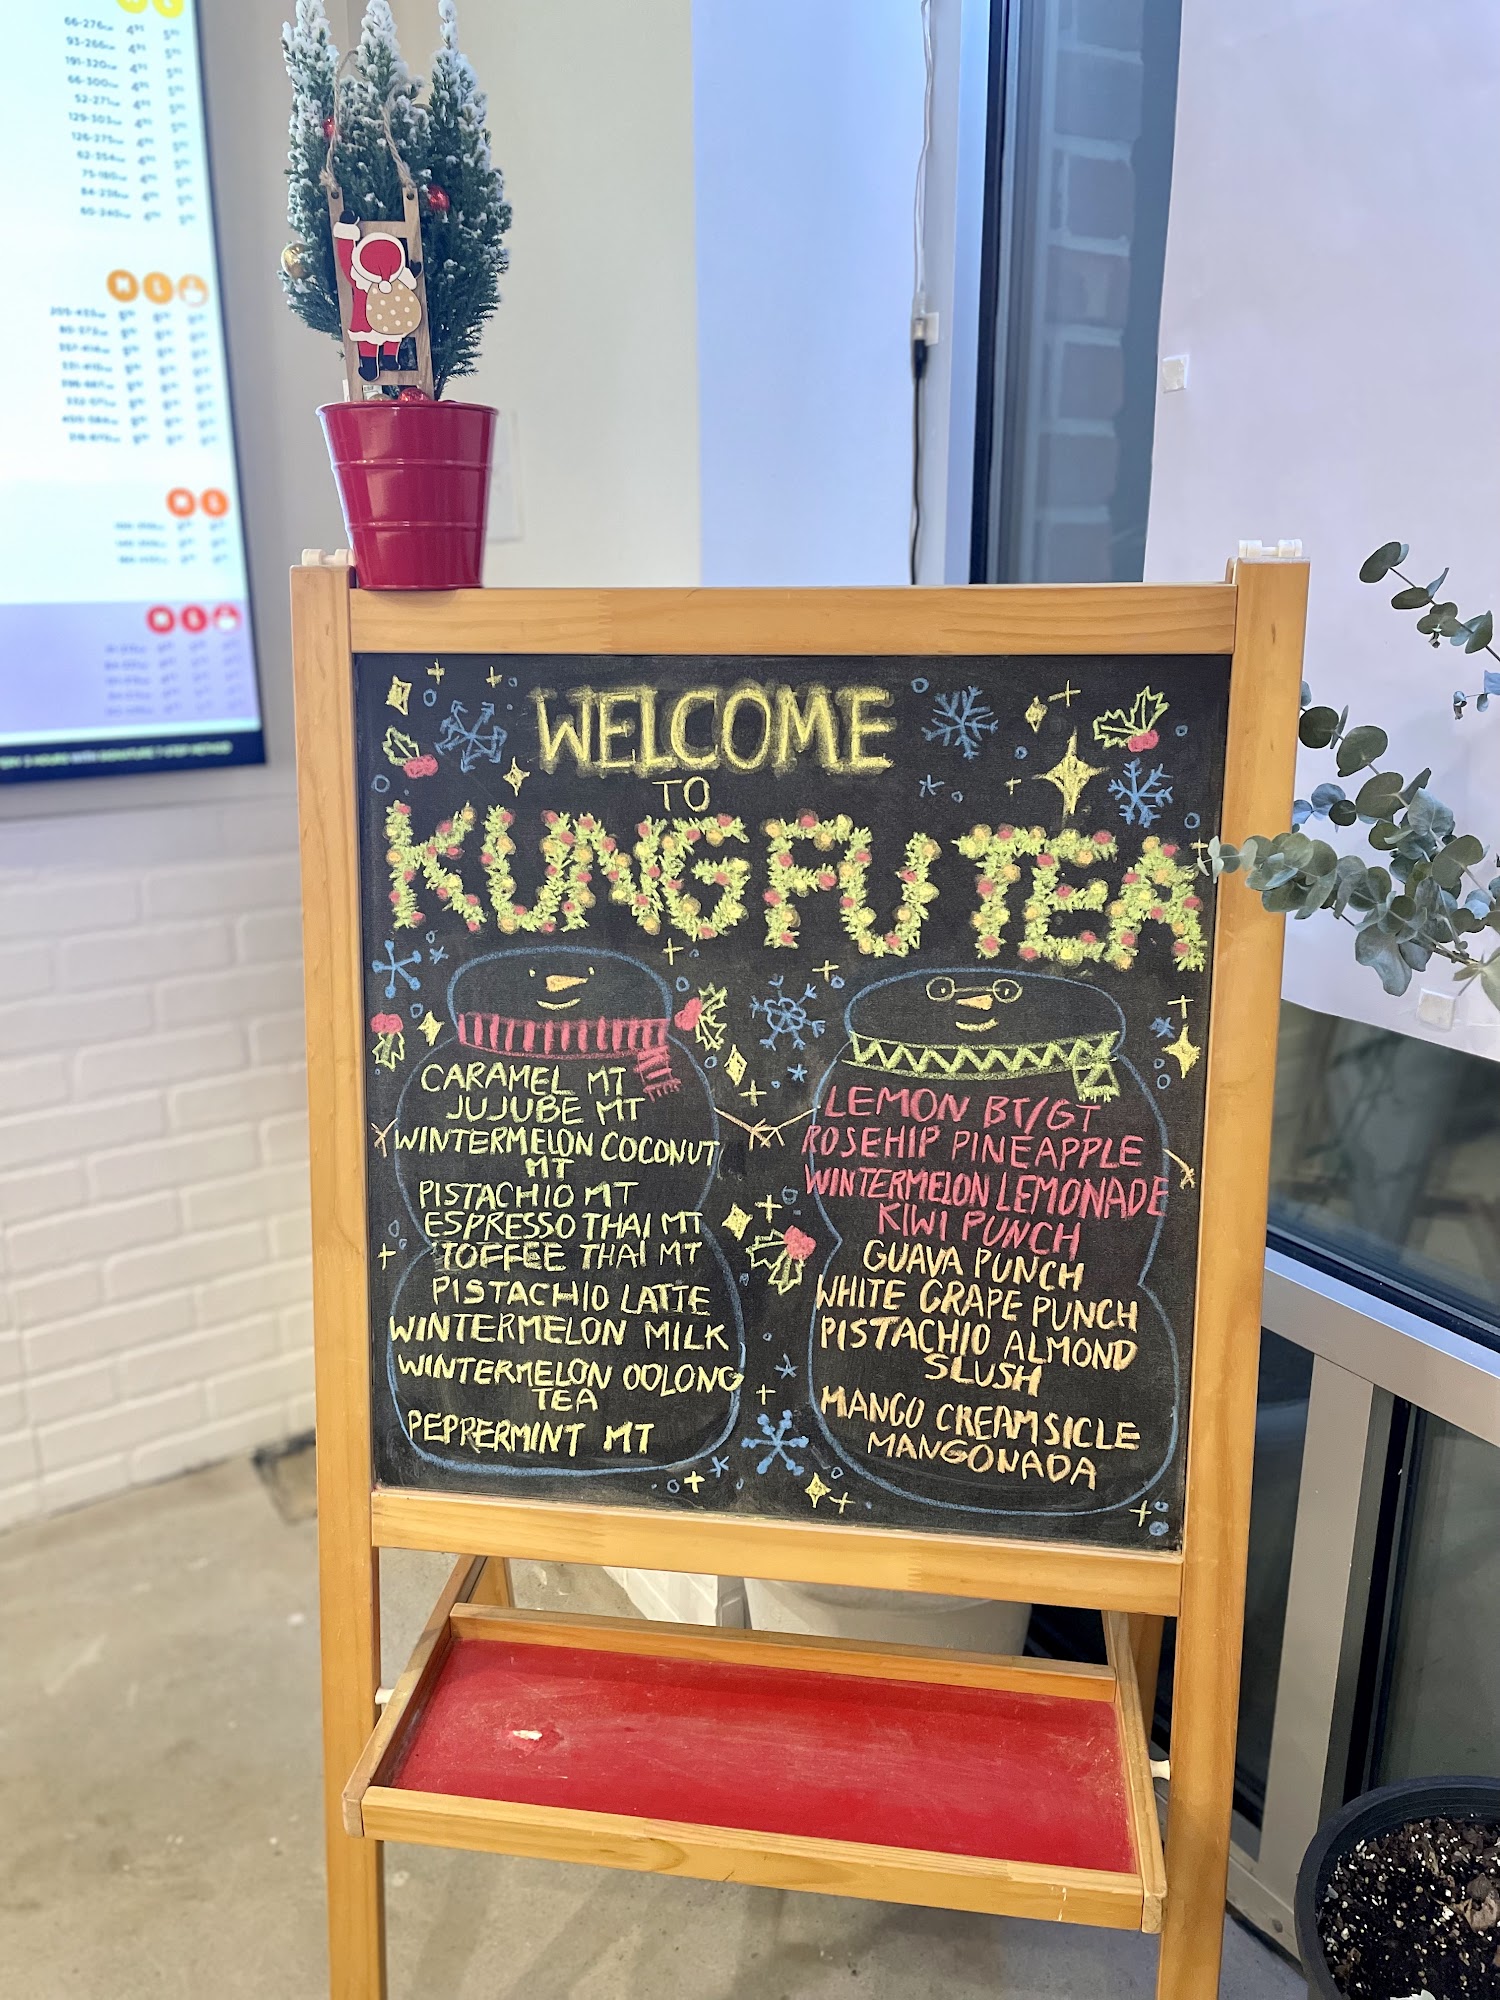 66-276
93-266
191-320
66-300
52-271
129-303
126-275
62-354
75-180
84-236
60-240
WELCOME
TO
KUNG FU TEA
CARAMEL MT
JUJUBE MT
WINTERMELON COCONUT
MT
PISTACHIO MT
ESPRESSO THAI MT
TOFFEE THAI MT
PISTACHIO LATTE
WINTERMELON MILK
WINTERMELON OOLONG
TEA
PEPPERMINT MT
LEMON BT/GT
ROSEHIP PINEAPPLE
WINTERMELON LEMONADE
KIWI PUNCH
GUAVA PUNCH
WHITE GRAPE PUNCH
PISTACHIO ALMOND
SLUSH
MANGO CREAMSICLE
MANGONADA